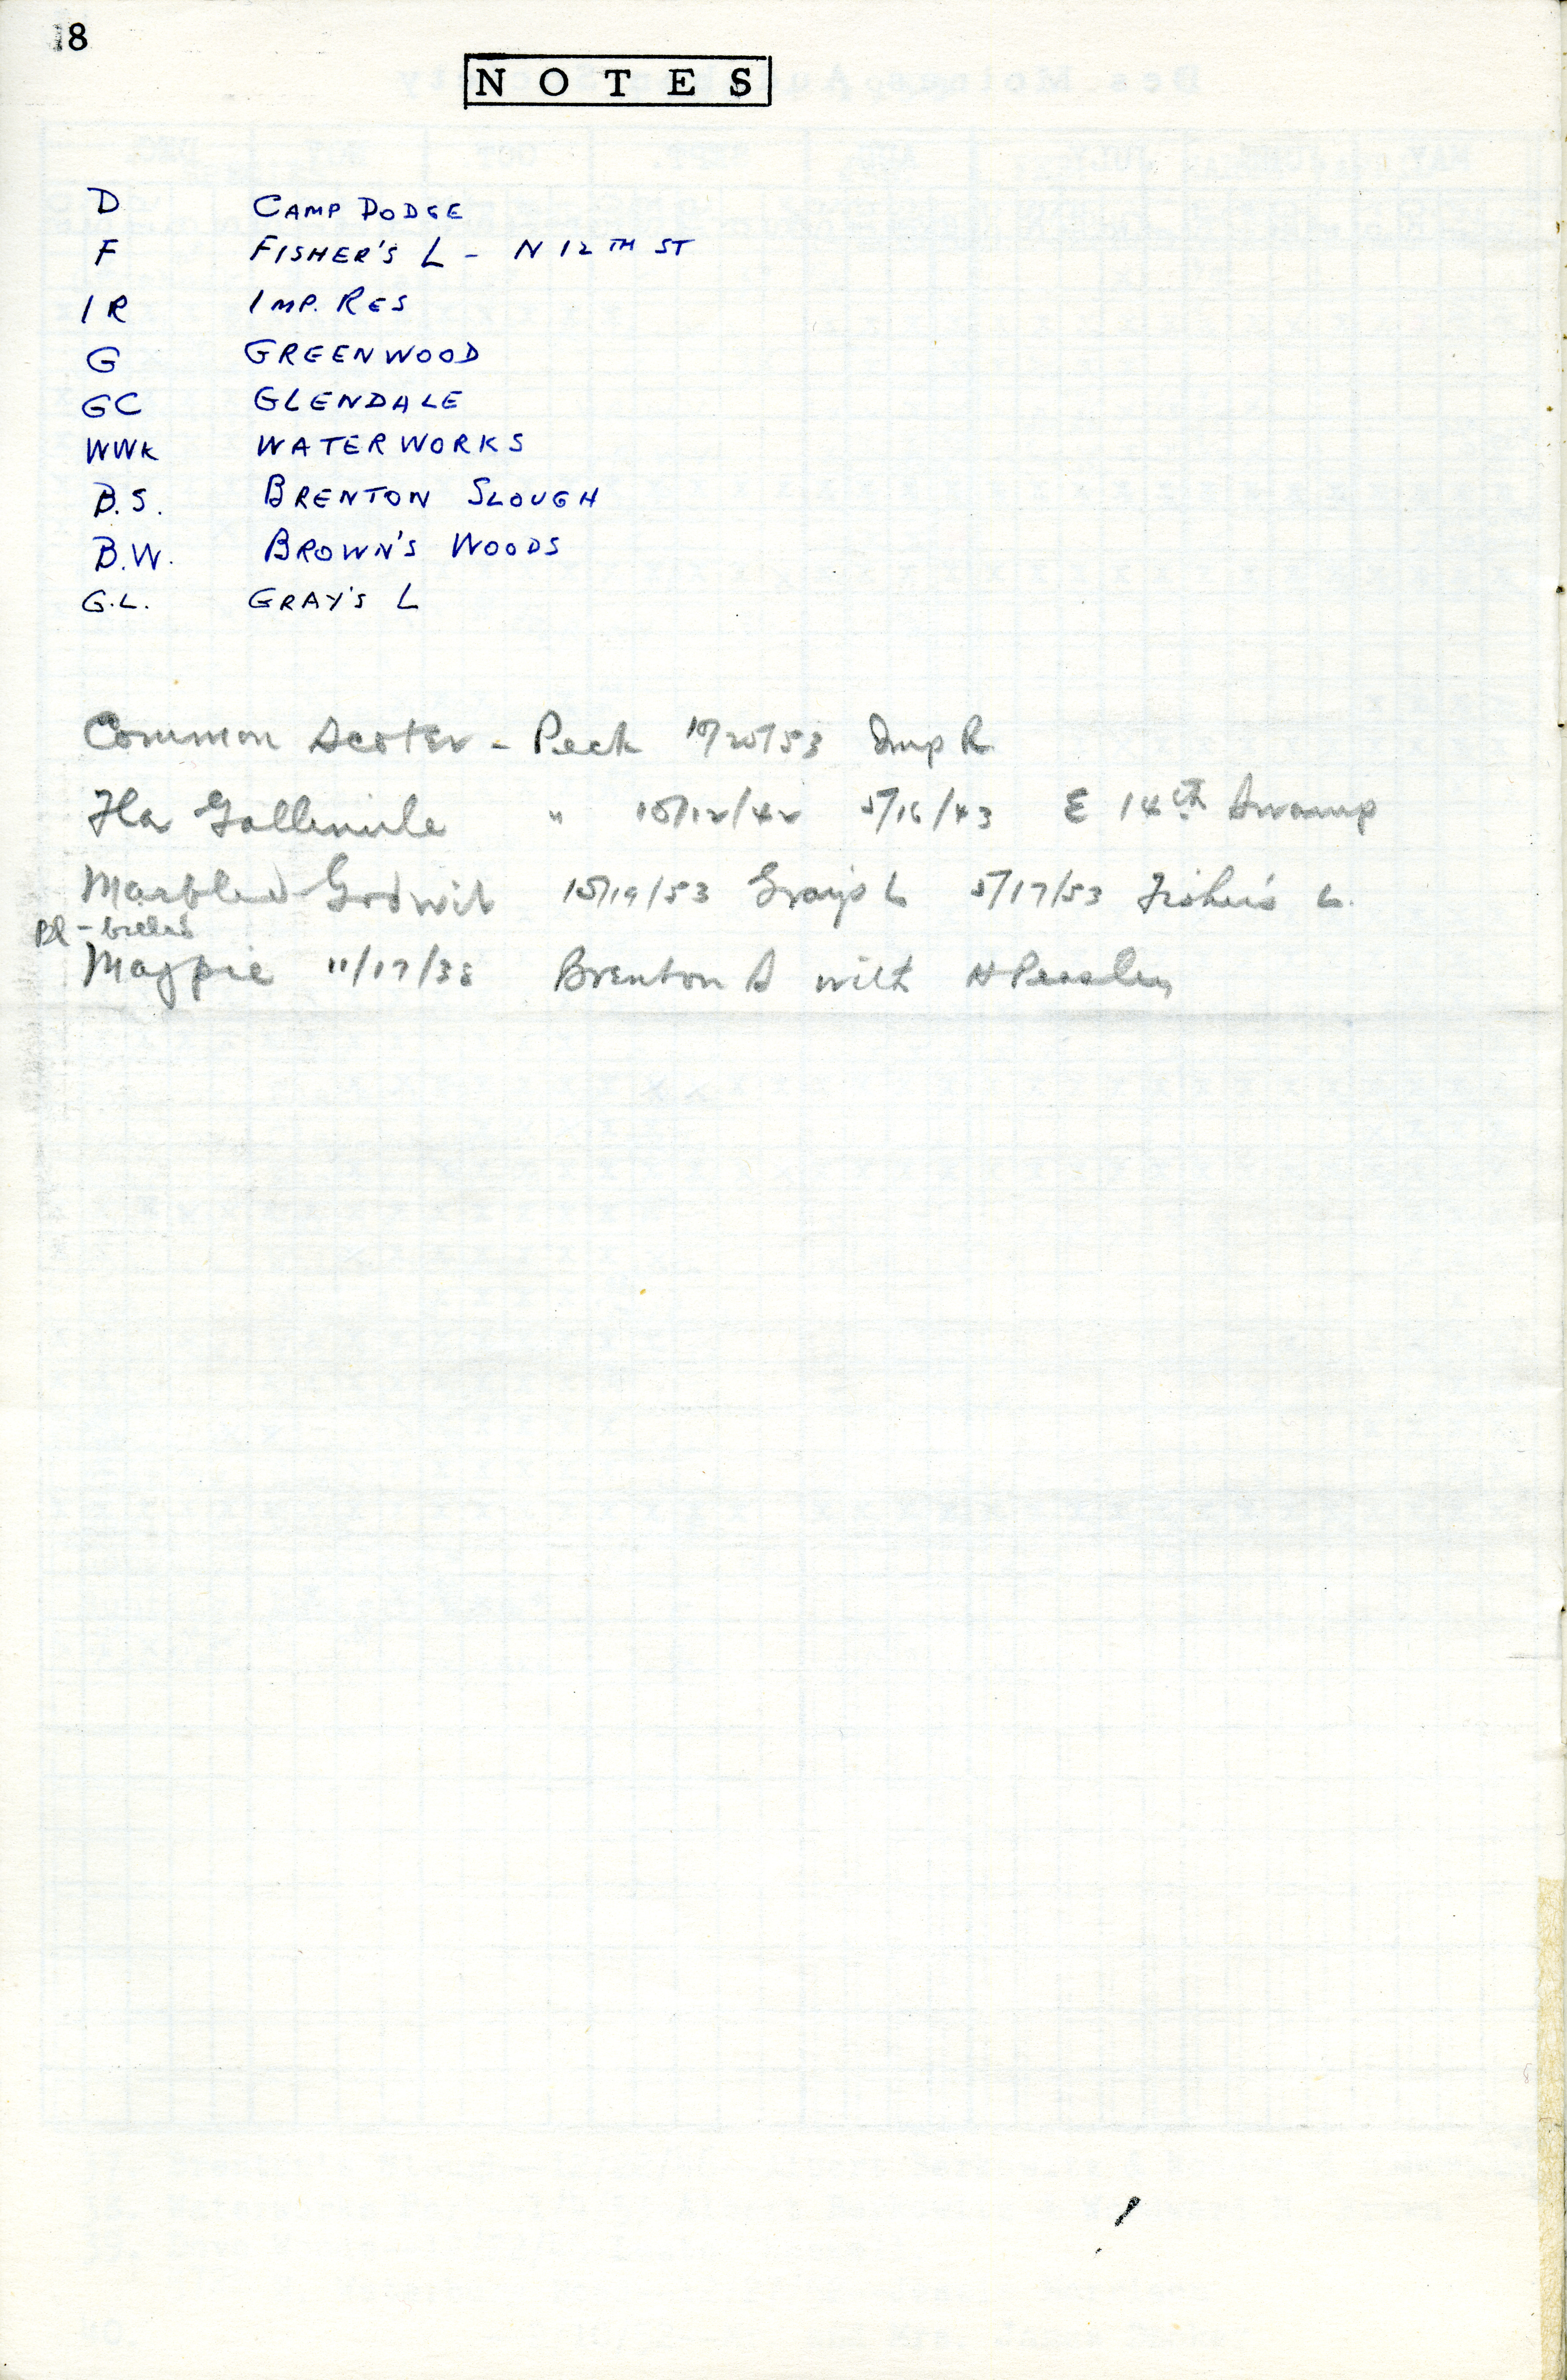 18
NOTES
D CAMP DODGE
F FISHER'S L - N 12TH ST
IR IMP. RES
G GREENWOOD
GC GLENDALE
WWK WATERWORKS
B.S. BRENTON SLOUGH
B.W. BROWN'S WOODS
G.L. GRAY'S L
Common Scoter - Peck 10/20/53 Imp R.
Fla Gallinule " 10/12/42 5/16/43 E 14th Swamp
Marbled Godwit 10/19/53 Gray's L 5/17/53 Fisher's L.
Bl-billed
Magpie 11/17/38 Brenton S with H Peasley